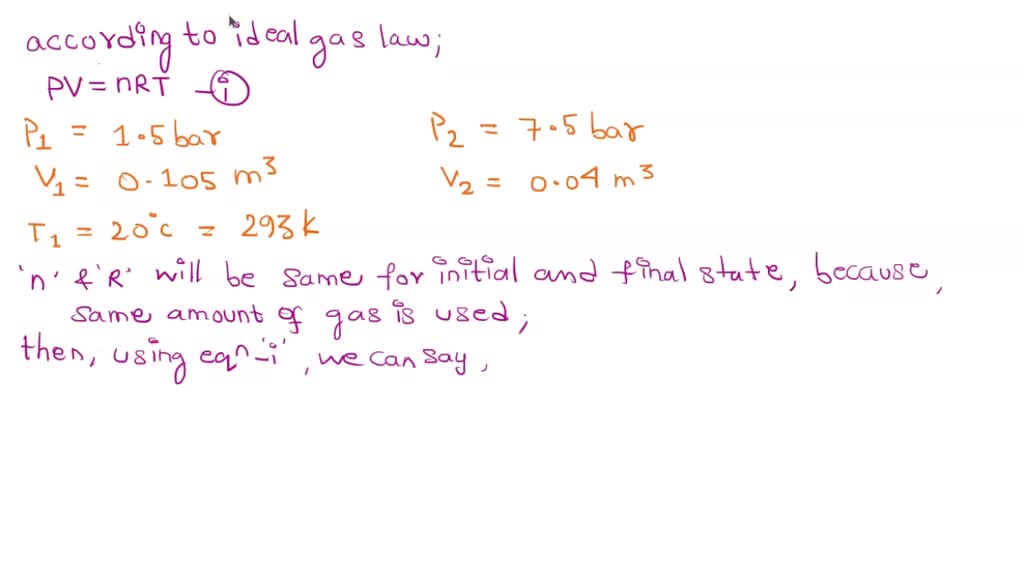 according to ideal gas law;
PV = nRT –(i)
P1 = 1.5 bar P2 = 7.5 bar
V1 = 0.105 m³ V2 = 0.04 m³
T1 = 20°c = 293 k
'n' & 'R' will be same for initial and final state, because,
same amount of gas is used;
then, using eqn –'i', we can say,